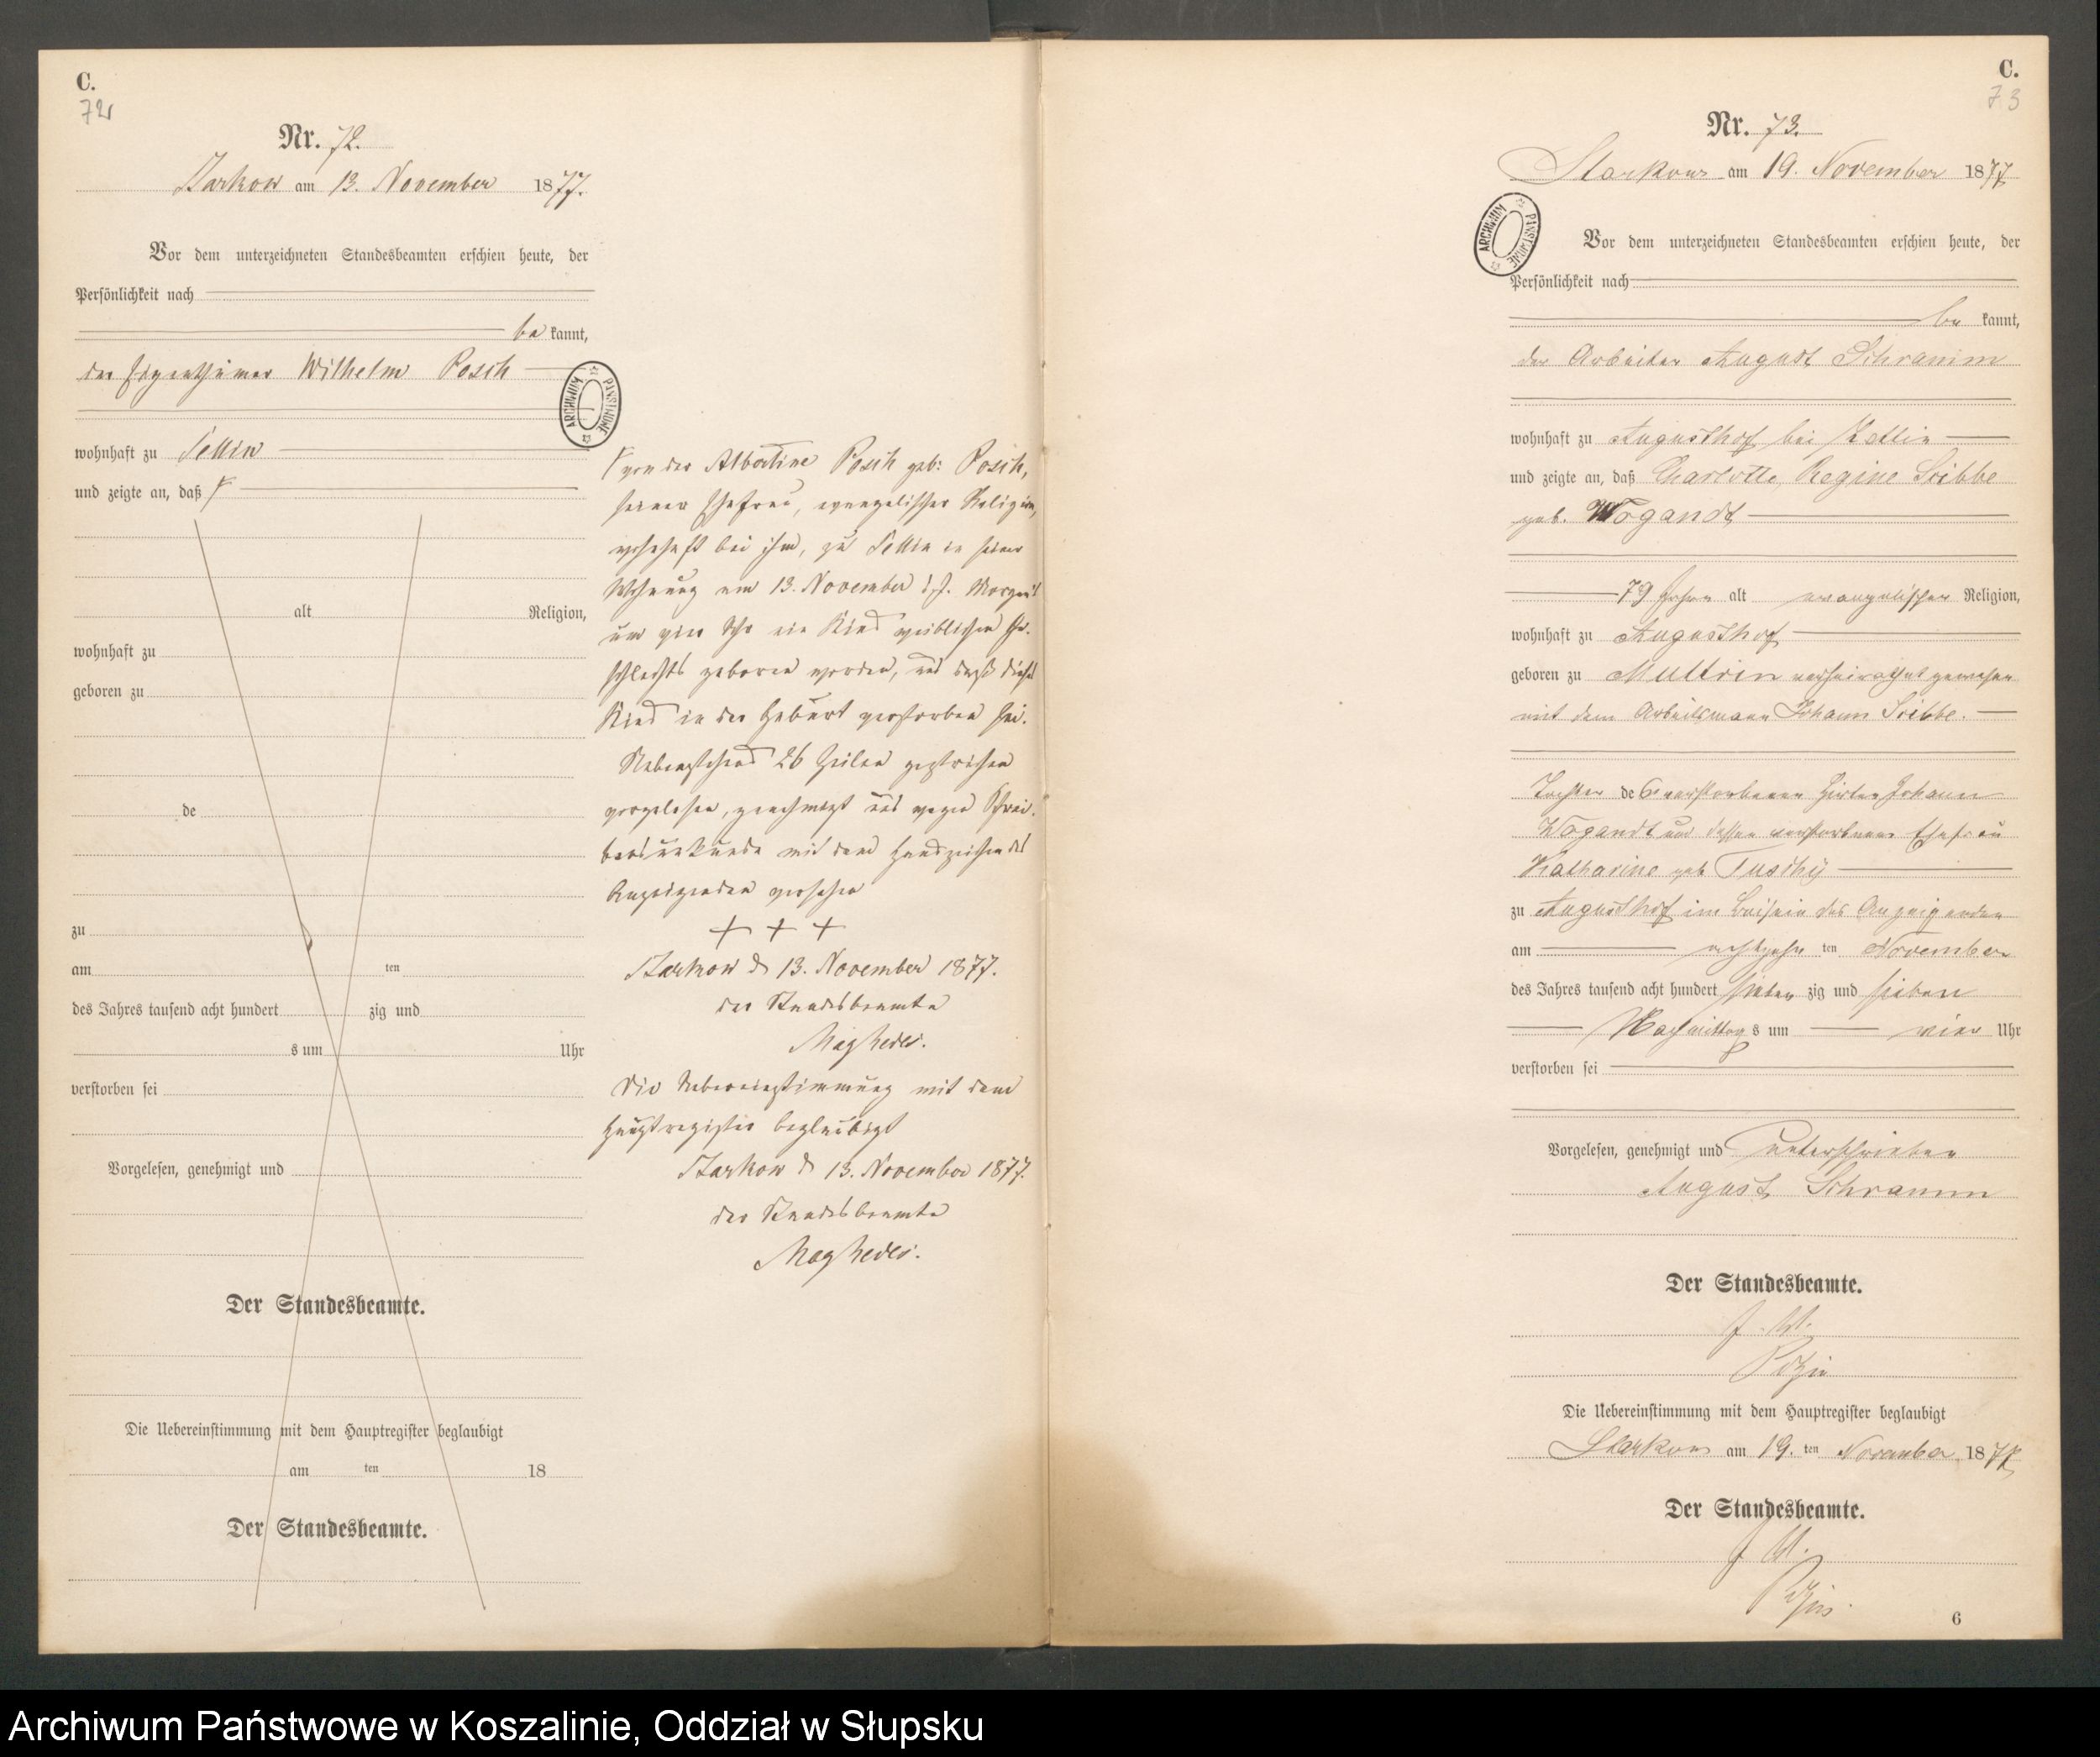 C.
72
Nr. 72.
Starkow am 13. November 1877.
Vor dem unterzeichneten Standesbeamten erschien heute, der
Persönlichkeit nach
be kannt,
der Eigenthümer Wilhelm Posch
wohnhaft zu Sellin
und zeigte an, daß
alt Religion,
wohnhaft zu
geboren zu
de
zu
am ten
des Jahres tausend acht hundert zig und
s um Uhr
verstorben sei
Vorgelesen, genehmigt und
Der Standesbeamte.
Die Uebereinstimmung mit dem Hauptregister beglaubigt
am ten 18
Der Standesbeamte.
ARCHIWUM PAŃSTWOWE
von der Albertine Posch geb: Posch,
seiner Ehefrau, evangelischer Religion,
wohnhaft bei ihm, zu Sellin in seiner
Wohnung am 13. November d. J. Morgens
um vier Uhr ein Kind weiblichen Ge-
schlechts geboren worden, und daß dieses
Kind in der Geburt verstorben sei.
Nebenstehend 26 Zeilen gestrichen
vorgelesen, genehmigt und wegen Schrei-
bensunkunde mit dem Handzeichen des
Anzeigenden versehen
+ + +
Starkow d 13. November 1877.
der Standesbeamte
Die Uebereinstimmung mit dem
Hauptregister beglaubigt
Starkow d 13. November 1877.
der Standesbeamte
C.
73
Nr. 73.
Starkow am 19. November 1877
ARCHIWUM PAŃSTWOWE
Vor dem unterzeichneten Standesbeamten erschien heute, der
Persönlichkeit nach
be kannt,
der Arbeiter August Schramm
wohnhaft zu Augusthof bei
und zeigte an, daß Charlotte Regine Sribbe
geb. Wogandt
79 Jahre alt evangelischer Religion,
wohnhaft zu Augusthof
geboren zu Muttrin verheirathet gewesen
mit dem Arbeitsmann Johann Sribbe.
Tochter des verstorbenen Hirten Johann
Wogandt und dessen verstorbenen Ehefrau
Katharine geb Tuschy
zu Augusthof im Beisein des Anzeigenden
am achtzehn ten November
des Jahres tausend acht hundert sieben zig und sieben
Nachmittag s um vier Uhr
verstorben sei
Vorgelesen, genehmigt und unterschrieben
August Schramm
Der Standesbeamte.
Die Uebereinstimmung mit dem Hauptregister beglaubigt
Starkow am 19. ten November 1877
Der Standesbeamte.
6
Archiwum Państwowe w Koszalinie, Oddział w Słupsku